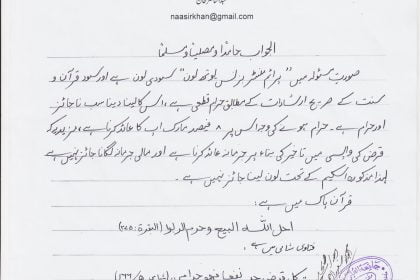 naasirkhan@gmail.com
الجواب حامدا ومصلیا ومسلما
صورتِ مسئولہ میں "پرائم منسٹر بزنس یوتھ لون" سودی لون ہے اور سود قرآن و
سنت کے صریح ارشادات کے مطابق حرام قطعی ہے، اس کا لینا دینا سب ناجائز
اور حرام ہے۔ حرام ہونے کی وجہ اس پر ۸ فیصد مارک اپ کا عائد کرنا ہے، مزید یہ کہ
قرض کی واپسی میں تاخیر کی بناء پر جرمانہ عائد کرنا ہے اور مالی جرمانہ لگانا جائز نہیں ہے
لہذا مذکورہ اسکیم کے تحت لون لینا جائز نہیں ہے۔
قرآن پاک میں ہے:
احل اللہ البیع وحرم الربوا (البقرۃ: ۲۷۵)
فتاویٰ شامی میں ہے:
کل قرض جر نفعا فهو حرام (شامی